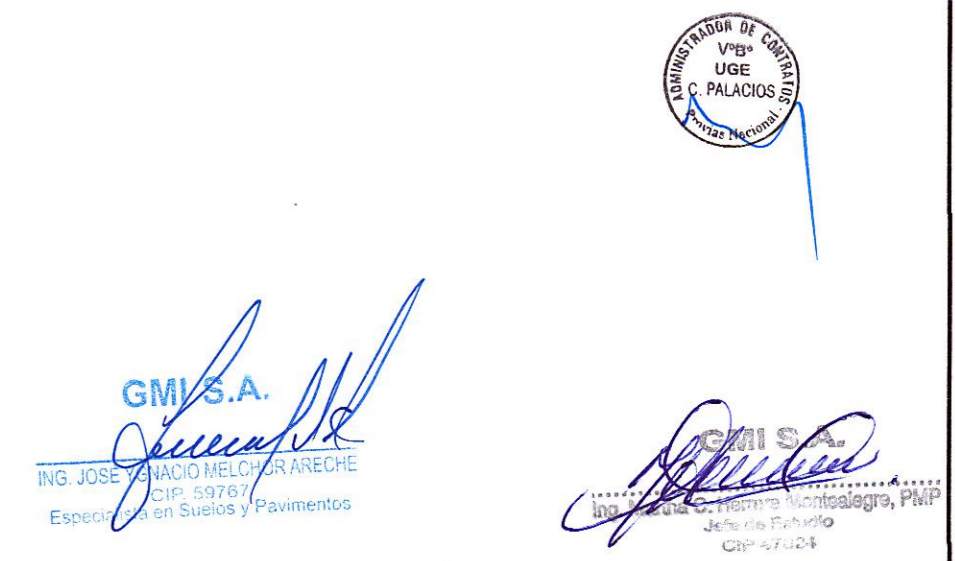 ADMINISTRADOR DE CONTRATOS
VºBº
UGE
C. PALACIOS
Provias Nacional
GMI S.A.
ING. JOSE YGNACIO MELCHOR ARECHE
CIP. 59767
Especialista en Suelos y Pavimentos
GMI S.A.
Ing. Martha C. Herrera Montealegre, PMP
Jefe de Estudio
CIP 47024